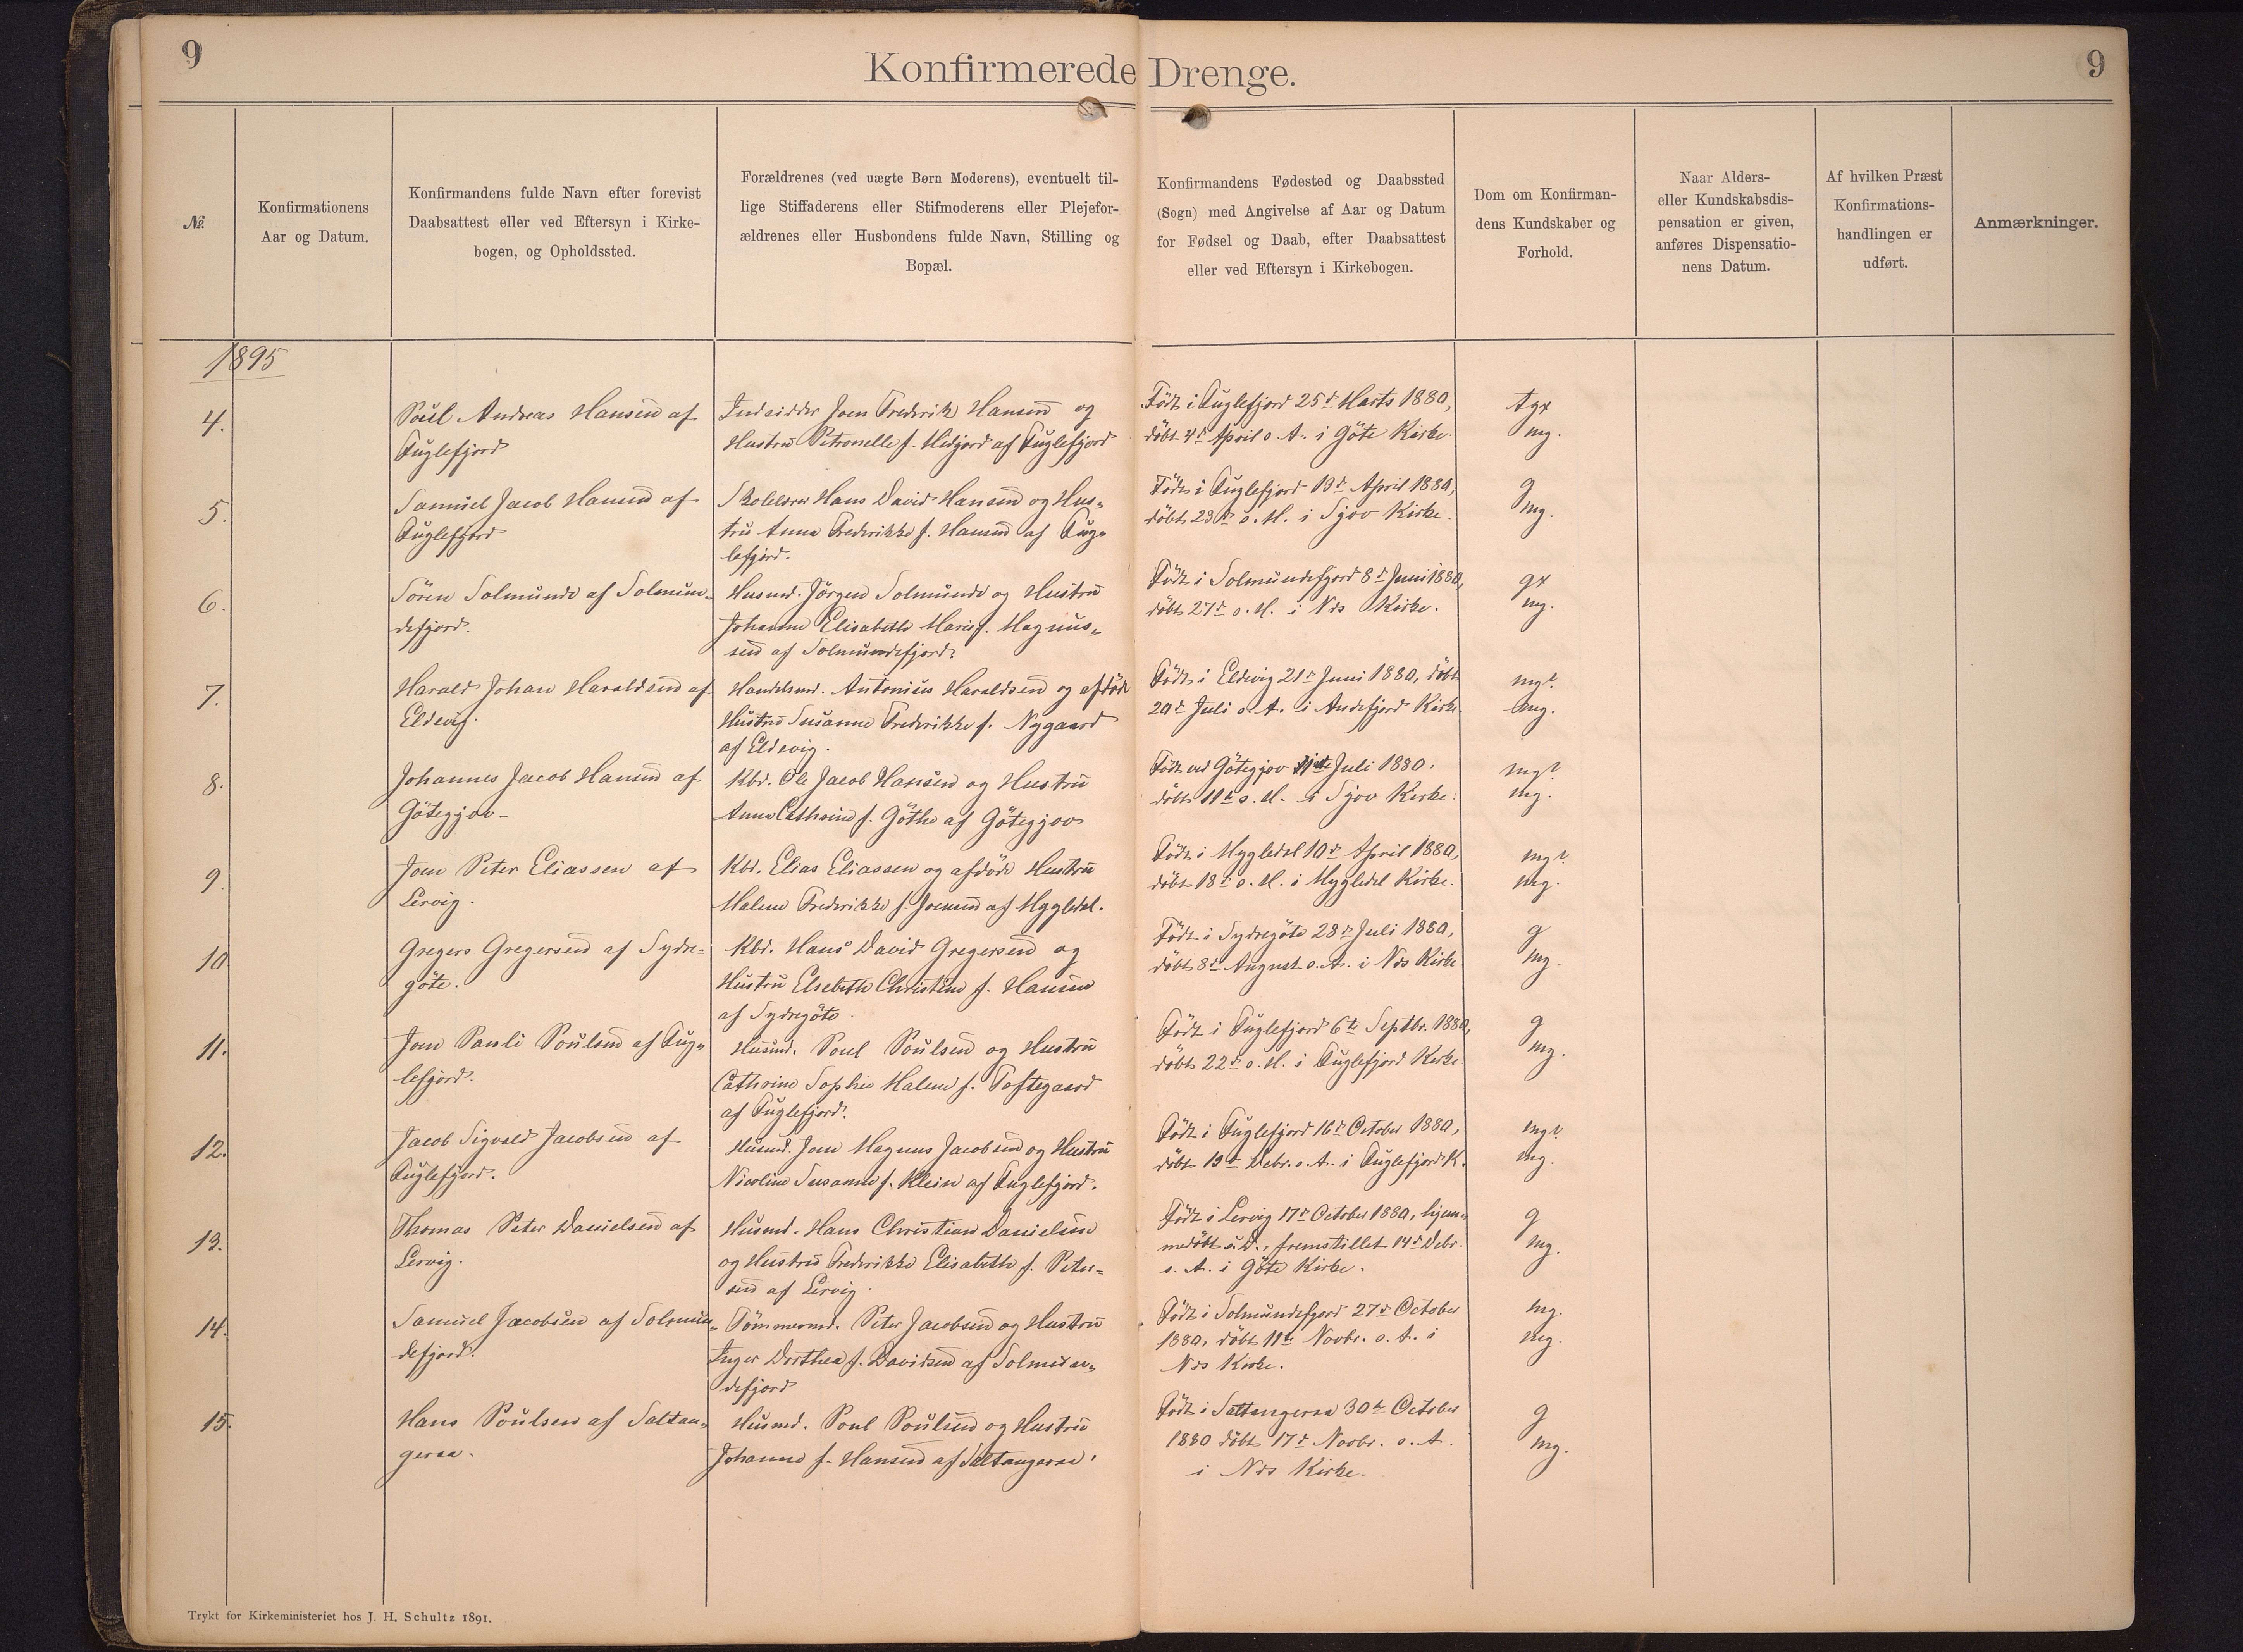 9
Konfirmerede Drenge.
9
№.
Konfirmationens
Aar og Datum.
Konfirmandens fulde Navn efter forevist
Daabsattest eller ved Eftersyn i Kirke-
bogen, og Opholdssted.
Forældrenes (ved uægte Børn Moderens), eventuelt til-
lige Stiffaderens eller Stifmoderens eller Plejefor-
ældrenes eller Husbondens fulde Navn, Stilling og
Bopæl.
Konfirmandens Fødested og Daabssted
(Sogn) med Angivelse af Aar og Datum
for Fødsel og Daab, efter Daabsattest
eller ved Eftersyn i Kirkebogen.
Dom om Konfirman-
dens Kundskaber og
Forhold.
Naar Alders-
eller Kundskabsdis-
pensation er given,
anføres Dispensatio-
nens Datum.
Af hvilken Præst
Konfirmations-
handlingen er
udført.
Anmærkninger.
1895
4.
Poul Andreas Hansen af
Fuglefjord
Indsidder Joen Frederik Hansen og
Hustru Petronelle f. Midjord af Fuglefjord
Födt i Fuglefjord 25d Marts 1880,
döbt 4d April s. A. i Göte Kirke.
tgx
mg.
5.
Samuel Jacob Hansen af
Fuglefjord
Skolelærer Hans David Hansen og Hus-
tru Anna Frederikke f. Hansen af Fug-
lefjord.
Födt i Fuglefjord 19d April 1880,
döbt 23d s. M. i Gjov Kirke.
g
mg.
6.
Sören Solmunde af Solmun-
defjord.
Husmd. Jörgen Solmunde og Hustru
Johanne Elisabeth Marie f. Magnus-
sen af Solmundefjord.
Födt i Solmundefjord 8d Juni 1880,
döbt 27d s. M. i Nds Kirke.
gx
mg.
7.
Harald Johan Haraldsen af
Eldevig.
Handelsmd. Antonius Haraldsen og afdöde
Hustru Susanne Frederikke f. Nygaard
af Eldevig.
Födt i Eldevig 21d Juni 1880, döbt
20d Juli s. A. i Andefjord Kirke.
mg?
mg.
8.
Johannes Jacob Hansen af
Götegjov-
Kbd. Ole Jacob Hansen og Hustru
Anna Cathrine f. Göthe af Götegjov
Födt ved Götegjov Juli 1880.
döbt 11te s. M. i Gjov Kirke.
mg?
mg.
9.
Joen Peter Eliassen af
Lervig.
Kbd. Elias Eliassen og afdöde Hustru
Malene Frederikke f. Joensen af Mygledal.
Födt i Mygledal 10d April 1880,
döbt 18d s. M. i Mygledal Kirke.
mg?
mg.
10
Gregers Gregersen af Sydre-
göte.
Kbd. Hans David Gregersen og
Hustru Elsebeth Christine f. Hansen
af Sydregöte.
Födt i Sydregöte 28d Juli 1880,
döbt 8d August s. A. i Nds Kirke
g
mg.
11.
Joen Pauli Poulsen af Fug-
lefjord.
Husmd. Poul Poulsen og Hustru
Cathrine Sophie Malene f. Toftegaard
af Fuglefjord.
Födt i Fuglefjord 6te Septbr. 1880,
döbt 22d s. M. i Fuglefjord Kirke
g
mg.
12.
Jacob Sigvald Jacobsen af
Fuglefjord.
Husmd. Joen Magnus Jacobsen og Hustru
Nicoline Susanne f. Klein af Fuglefjord.
Födt i Fuglefjord 16d October 1880,
döbt 19d Debr. s. A. i Fuglefjord K.
mg?
mg.
13.
Thomas Peter Danielsen af
Lervig.
Husmd. Hans Christian Danielsen
og Hustru Frederikke Elisabeth f. Peter-
sen af Lervig.
Födt i Lervig 17d October 1880, hjem-
medöbt s. D., fremstillet 14d Debr.
s. A. i Göte Kirke.
g
mg.
14.
Samuel Jacobsen af Solmun-
defjord.
Tömmermd. Peter Jacobsen og Hustru
Inger Dorthea f. Davidsen af Solmun-
defjord
Födt i Solmundefjord 27d October
1880, döbt 11te Novbr. s. A. i
Nds Kirke.
mg.
mg.
15.
Hans Poulsen af Saltan-
geraa.
Husmd. Poul Poulsen og Hustru
Johanne f. Hansen af Saltangeraa.
Födt i Saltangeraa 30te October
1880 döbt 17d Novbr. s. A.
i Nds Kirke.
g
mg.
Trykt for Kirkeministeriet hos J. H. Schultz 1891.